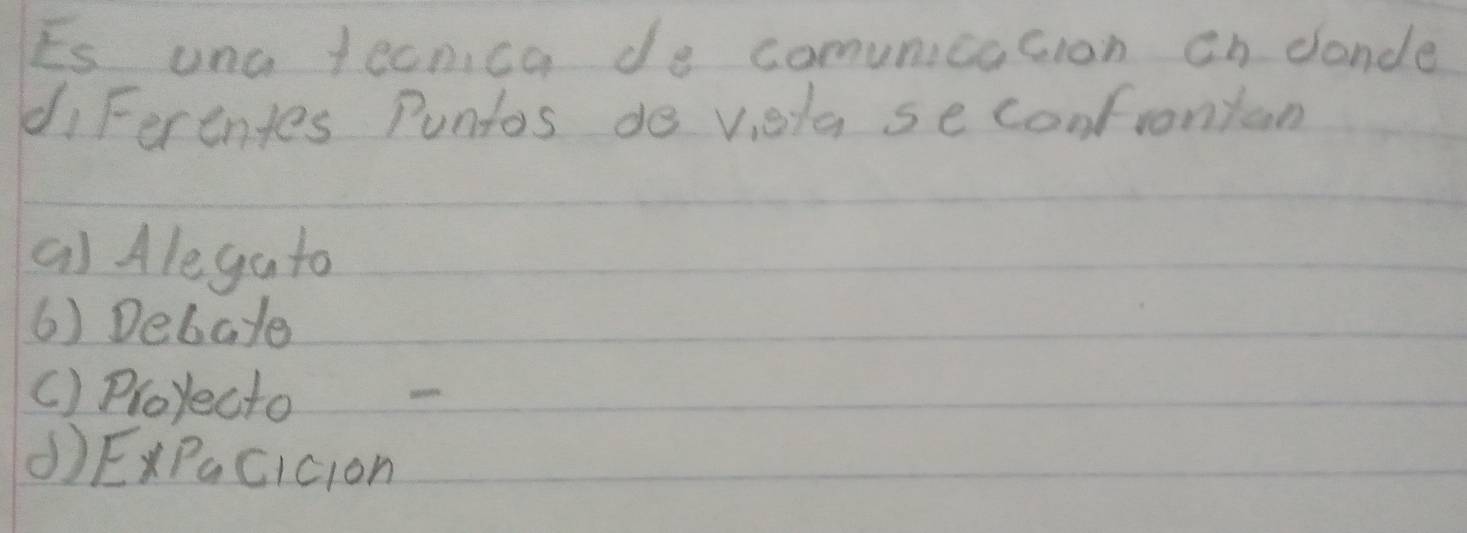 Es una tecnica de comunicacion en donde
diFerentes Puntos de vista se confrontan
a) Alegato
b) Debate
c) Proyecto -
d) ExPacicion